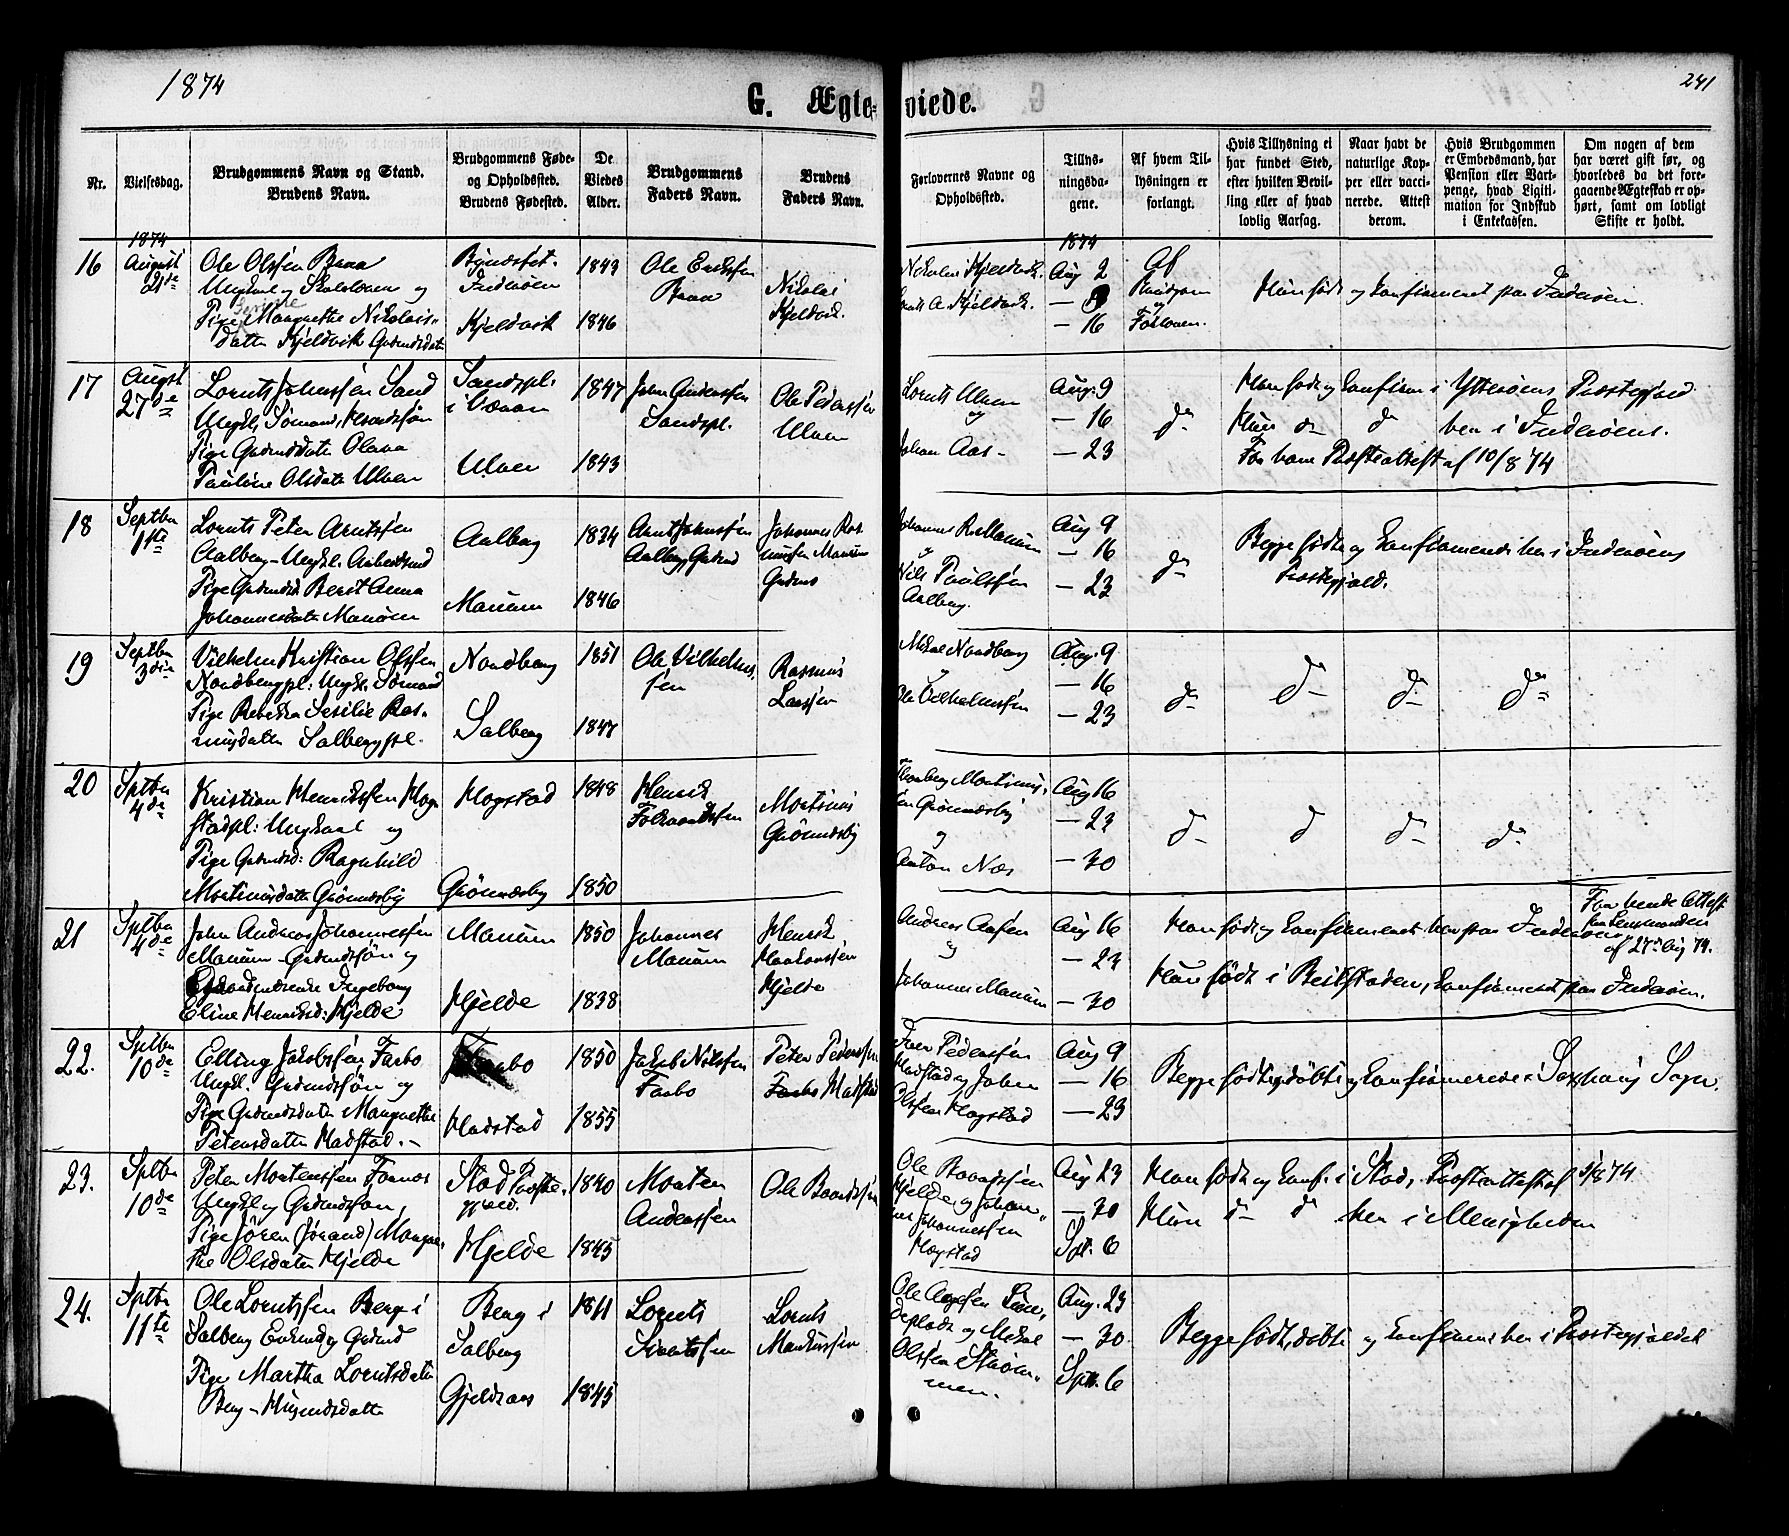 1874
241
G. Ægteviede.
Nr.
Vielsesdag.
Brudgommens Navn og Stand.
Brudens Navn.
Brudgommens Føde-
og Opholdssted.
Brudens Fødested.
De
Viedes
Alder.
Brudgommens
Faders Navn.
Brudens
Faders Navn.
Forlovernes Navne og
Opholdssted.
Tillys-
ningsda-
gene.
Af hvem Til-
lysningen er
forlangt.
Hvis Tillysning ei
har fundet Sted,
efter hvilken Bevil-
ling eller af hvad
lovlig Aarsag.
Naar havt de
naturlige Kop-
per eller vacci-
nerede. Attest
derom.
Hvis Brudgommen
er Embedsmand, har
Pension eller Vart-
penge, hvad Ligiti-
mation for Indskud
i Enkekassen.
Om nogen af dem
har været gift før, og
hvorledes da det fore-
gaaende Ægteskab er op-
hørt, samt om lovligt
Skifte er holdt.
16
1874
August
21de
Ole Olsen Braa
Ungkarl og Skolelærer og
Pige Margrethe Nikolais-
datter Kjeldvik Gdmdsdatr
Byndset.
Inderøen
Kjeldvik
1843
1846
Ole Eriksen
Braa
Nikolai
Kjeldvik.
Nikolai Kjeldvik.
A Kjeldvik.
1874
Aug 2
— 9
— 16
Af
Brudgom
og
Forlover.
Hun født og konfirmeret paa Inderøen.
17
August
27de
Lornts Johnssen Sand
Ungk. Sømand,
Pige Gdmdsdatr Olava
Pauline Olsdatr Ulven
Sandspl.
i Væran
Ulven
1847
1843
John Andersen
Sandspl.
Ole Pedersen
Ulven
Lornts Ulven
og
Johan Aas-
Aug. 9
— 16
— 23
do
Han født og konfirm i Ytterøens Præstegjæld
Hun do do her i Inderøens.
For ham Præsteattest af 10/8 74
18
Septbr
1ste
Lornts Peter Arntssen
Aalberg-Ungkl. Arbeidsmd
Pige Gdmdsd. Berit Anna
Johannesdatr Marøen
Aalberg
Marium
1834
1846
Arnt Johnssen
Aalberg, Gdmd
Johannes Ras-
mussen Marium
Gdmd
Johannes R. Marium
og
Nils Paulssen
Aalberg.
Aug 9
— 16
— 23
do
Begge fødte og konfirmerede her i Inderøens
Præstegjæld.
19
Septbr
3die
Vilhelm Kristian Olsen
Nordbergpl: Ungk. Sømand
Pige Rebekka Sesilie Ras-
musdatter Salbergspl.
Nordberg
Salberg
1851
1847
Ole Vilhelms-
sen
Rasmus
Larssen
Mikal Nordberg
og
Ole Vilhelmssen
Aug. 9
— 16
— 23
do
do
do
do
20
Sptbr
4de
Kristian Henrikssen Hog-
stadpl: Ungkarl og
Pige Gdmdsd: Ragnhild
Mortinusdatter Grønnesby
Hogstad
Grønnesby
1848
1850
Henrik
Mortinus
Grønnesby
Thorberg Mortinus-
sen Grønnesby
og
Anton Næs
Aug 16
— 23
— 30
do
do
do
do
21
Sptbr
4de
John Andreas Johannessen
Marium - Gdmdssøn og
Ingeborg
Eline Henriksd: Hjelde
Marium
Hjelde
1850
1838
Johannes
Marium
Henrik
Haakonssen
Hjelde
Andreas Aasen
og
Johannes Marium
Aug 16
— 23
— 30
Han født og konfirmeret her paa Inderøen
Hun født i Beitstaden, konfirmeret paa Inderøen.
For hende Attest
fra Lensmanden
af 27 Aug 74.
22.
Sptbr
10de
Elling Jakobssen Farbo
Ungkl. Gdmdssøn og
Pige Gdmdsdatr Margrethe
Petersdatter Hadstad.
Farbo
Hadstad
1850
1855
Jakob Nilssen
Farbo
Peter Pederssen
Farbo Hadstad
Iver Pederssen
Hadstad og Johan
Olsen Hogstad
Aug 9
— 16
— 23
Begge fødte, døbte og konfirmerede i Saxhaug Sogn.
23.
Sptbr
10de
Peter Mortenssen Fornes
Ungkl og Gdmdssøn,
Pige Jøren (Jørand) Margre-
the Olsdatr Hjelde
Stod Præste-
gjæld.
Hjelde
1840
1845
Morten
Anderssen
Ole Baardssen
Ole Baardssen
Hjelde og Johan-
nes Johannessen
Hogstad
Aug 23
— 30
Spt. 6
Han født og konf. i Stod, Præsteattest af 1/8 74
Hun do do her i Menigheden
24.
Sptbr
11te
Ole Lorntssen Berg i
Salberg Enkemd og Gdmd
Pige Martha Lorntsdatr
Berg - Husmdsdatter
Berg i
Salberg
Gjeldsaas
1811
1845
Lornts
Lornts
Markussen
Ole Aagesen
og Mikal
Olssen Strøm-
men.
Aug. 23
— 30
Spt. 6
Begge født, døbte og konfirm: her i Præstegjeldet